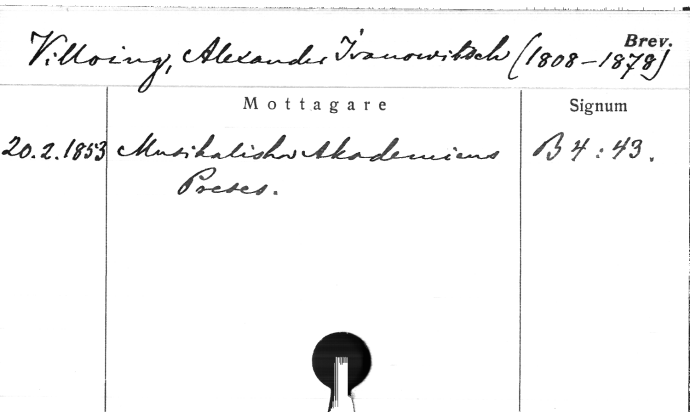 Brev.
Villoing, Alexander Ivanowitsch (1808-1878)
Mottagare Signum
20.2.1853 Musikaliska Akademiens B 4:43.
Preses.